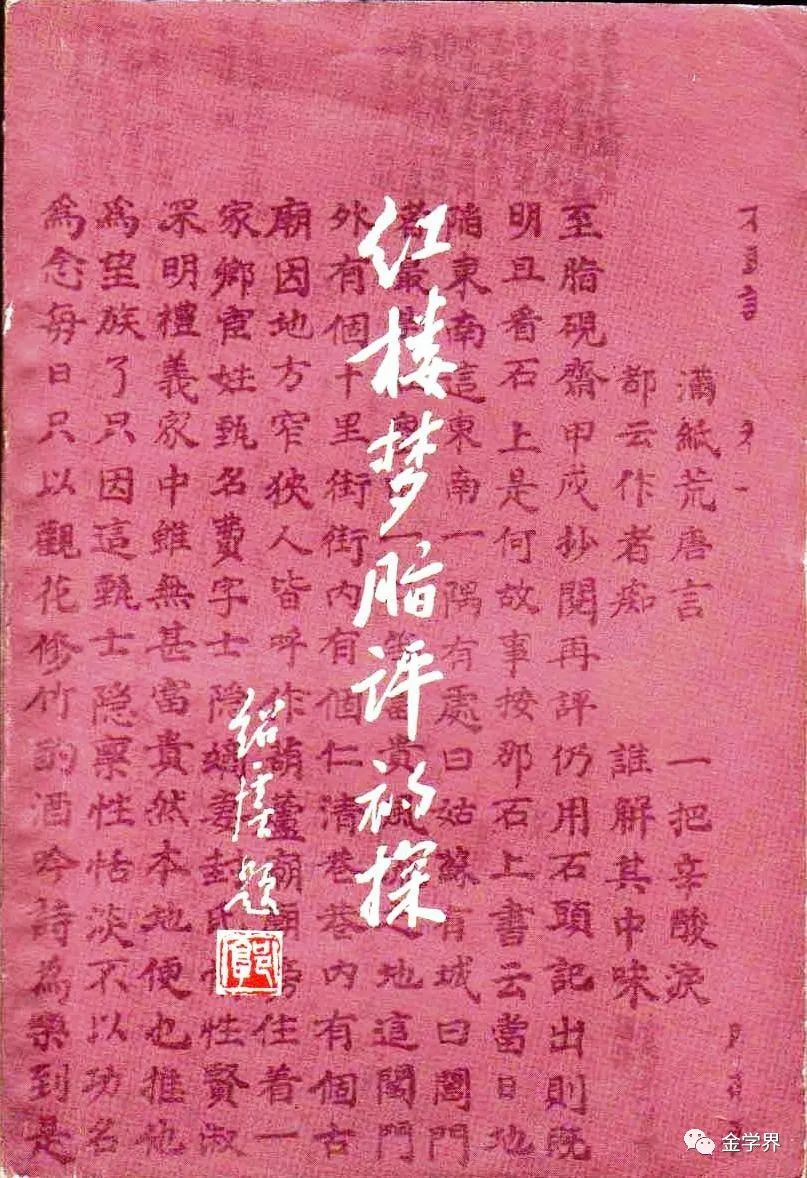 红楼梦脂评初探
绍虞题
郭
滿紙荒唐言 一把辛酸淚
都云作者痴 誰解其中味
至脂硯齋甲戌抄閱再評仍用石頭記出則既
明且看石上是何故事按那石上書云當日地
陷東南這東南一隅有處曰姑蘇有城曰閶門
者最 貴風 地這閶門
外有個十里街街內有個仁清巷巷內有個古
廟因地方窄狹人皆呼作葫蘆廟廟 住着一
家鄉宦姓甄名費字士隱嫡妻封 性賢淑
深明禮義家中雖無甚富貴然本地便也推他
為望族了只因這甄士隱稟性恬淡不以功名
為念每日只以觀花修竹酌酒吟詩為樂到是
金学界